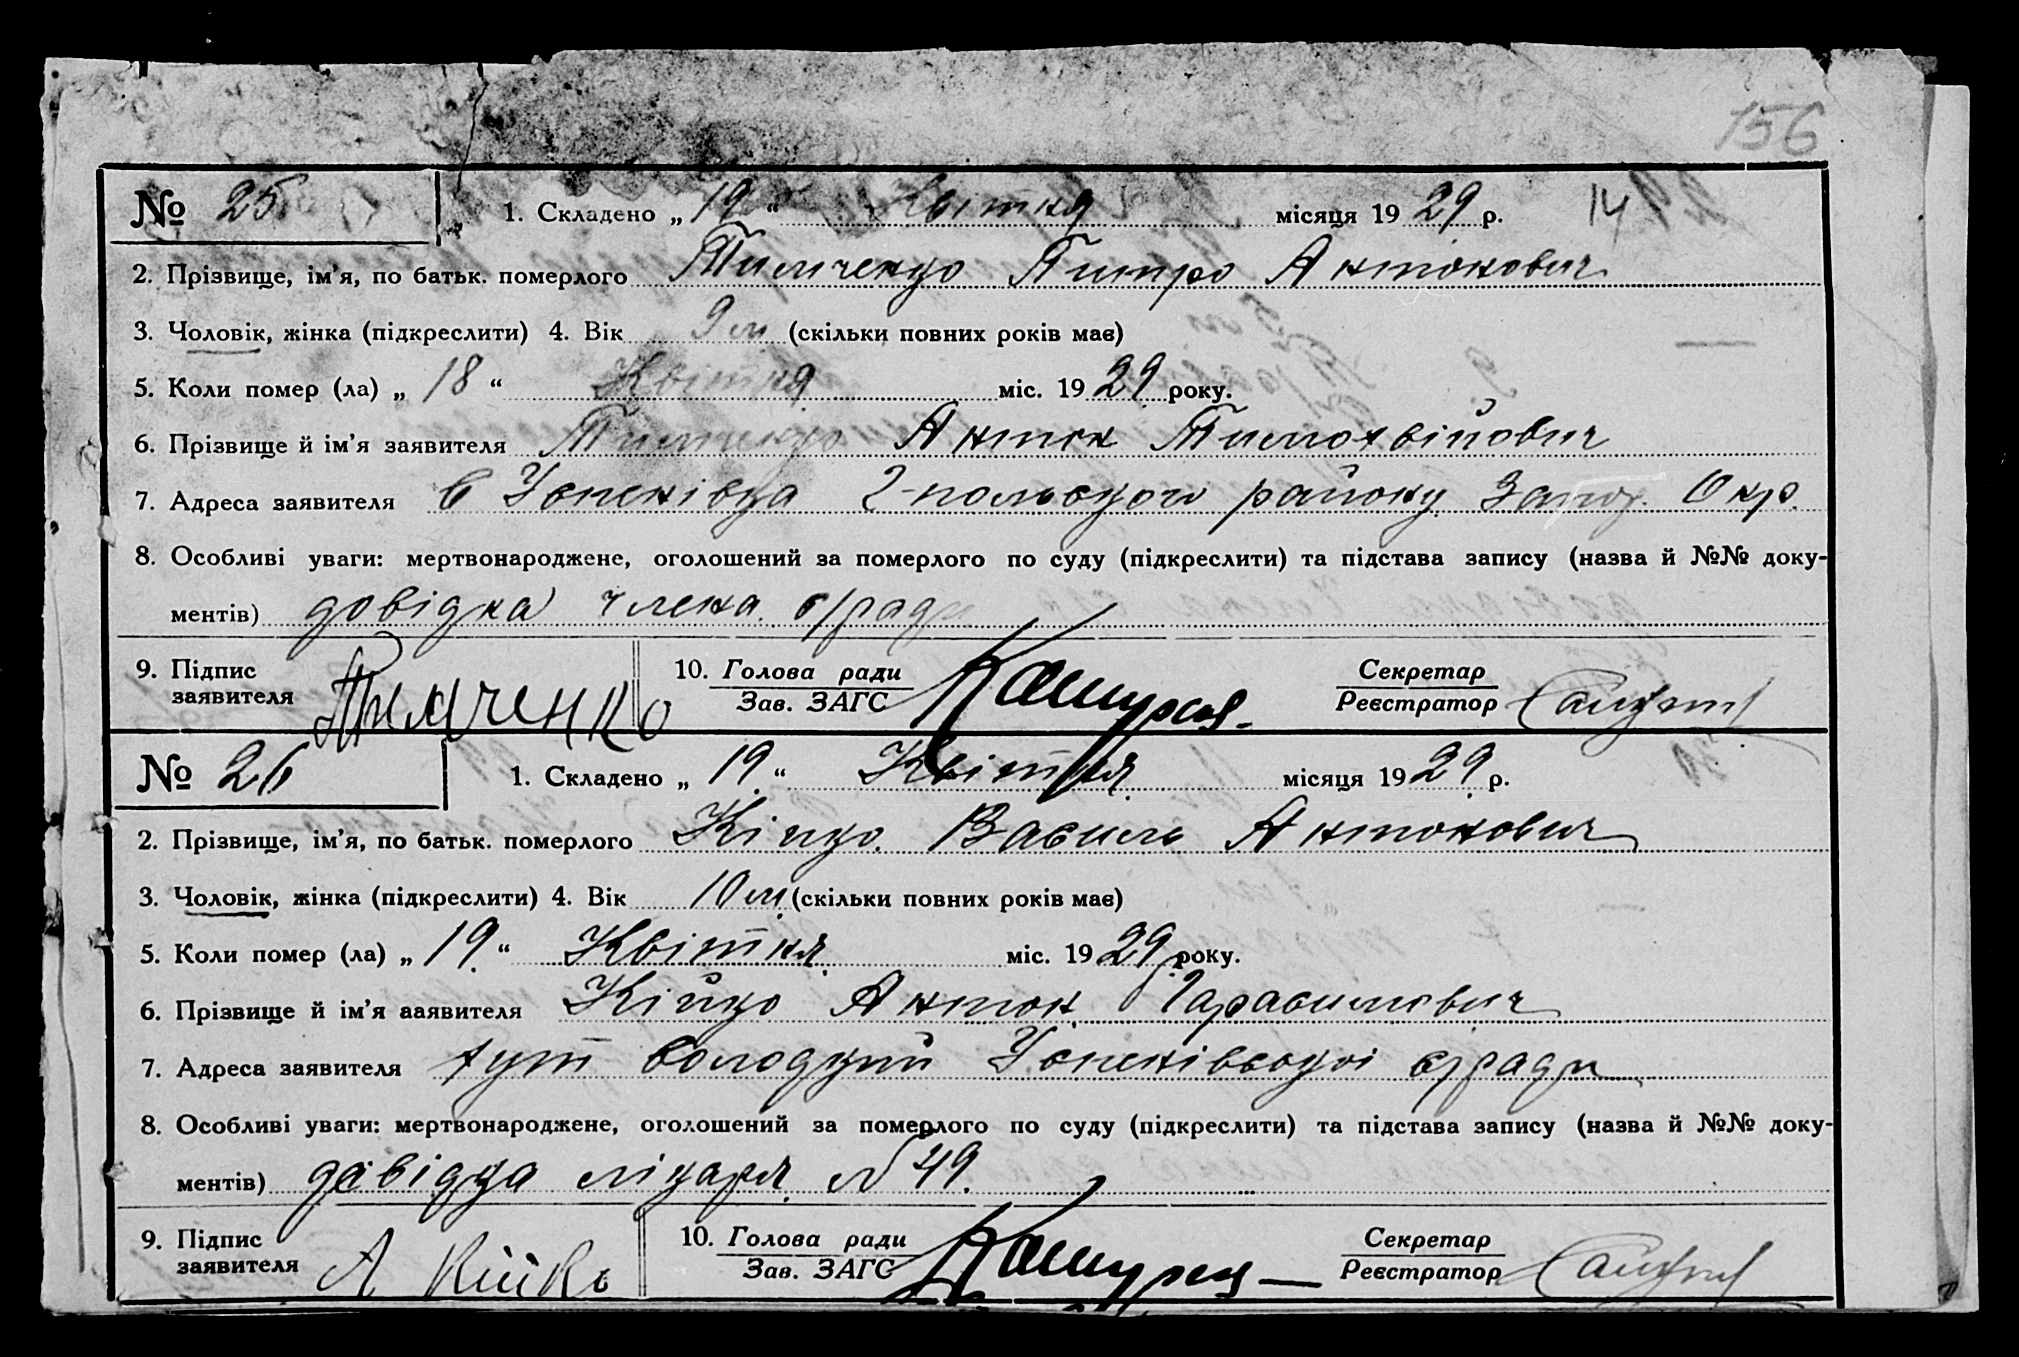 156
№ 25 1. Складено „ 19 “ Квітня місяця 19 29 р. 14
2. Прізвище, ім’я, по батьк. померлого Тимченко Питро Антонович
3. Чоловік, жінка (підкреслити) 4. Вік 9 м (скільки повних років має)
5. Коли помер (ла) „ 18 “ Квітня міс. 19 29 року.
6. Прізвище й ім’я заявителя Тимченко Антон Тимохвійович
7. Адреса заявителя с Успенівка 2-польского району Запор. Окр.
8. Особливі уваги: мертвонароджене, оголошений за померлого по суду (підкреслити) та підстава запису (назва й №№ доку-
ментів) довідка члена с/ради
9. Підпис заявителя Тимченко 10. Голова ради Зав. ЗАГС Секретар Реєстратор
№ 26 1. Складено „ 19 “ Квітня місяця 19 29 р.
2. Прізвище, ім’я, по батьк. померлого Кійко Василь Антонович
3. Чоловік, жінка (підкреслити) 4. Вік 10 м (скільки повних років має)
5. Коли помер (ла) „ 19 “ Квітня міс. 19 29 року.
6. Прізвище й ім’я заявителя Кійко Антон Гарасимович
7. Адреса заявителя тут Успенівської с/ради
8. Особливі уваги: мертвонароджене, оголошений за померлого по суду (підкреслити) та підстава запису (назва й №№ доку-
ментів) давідка лікаря N 49.
9. Підпис заявителя А Кійко 10. Голова ради Зав. ЗАГС Секретар Реєстратор